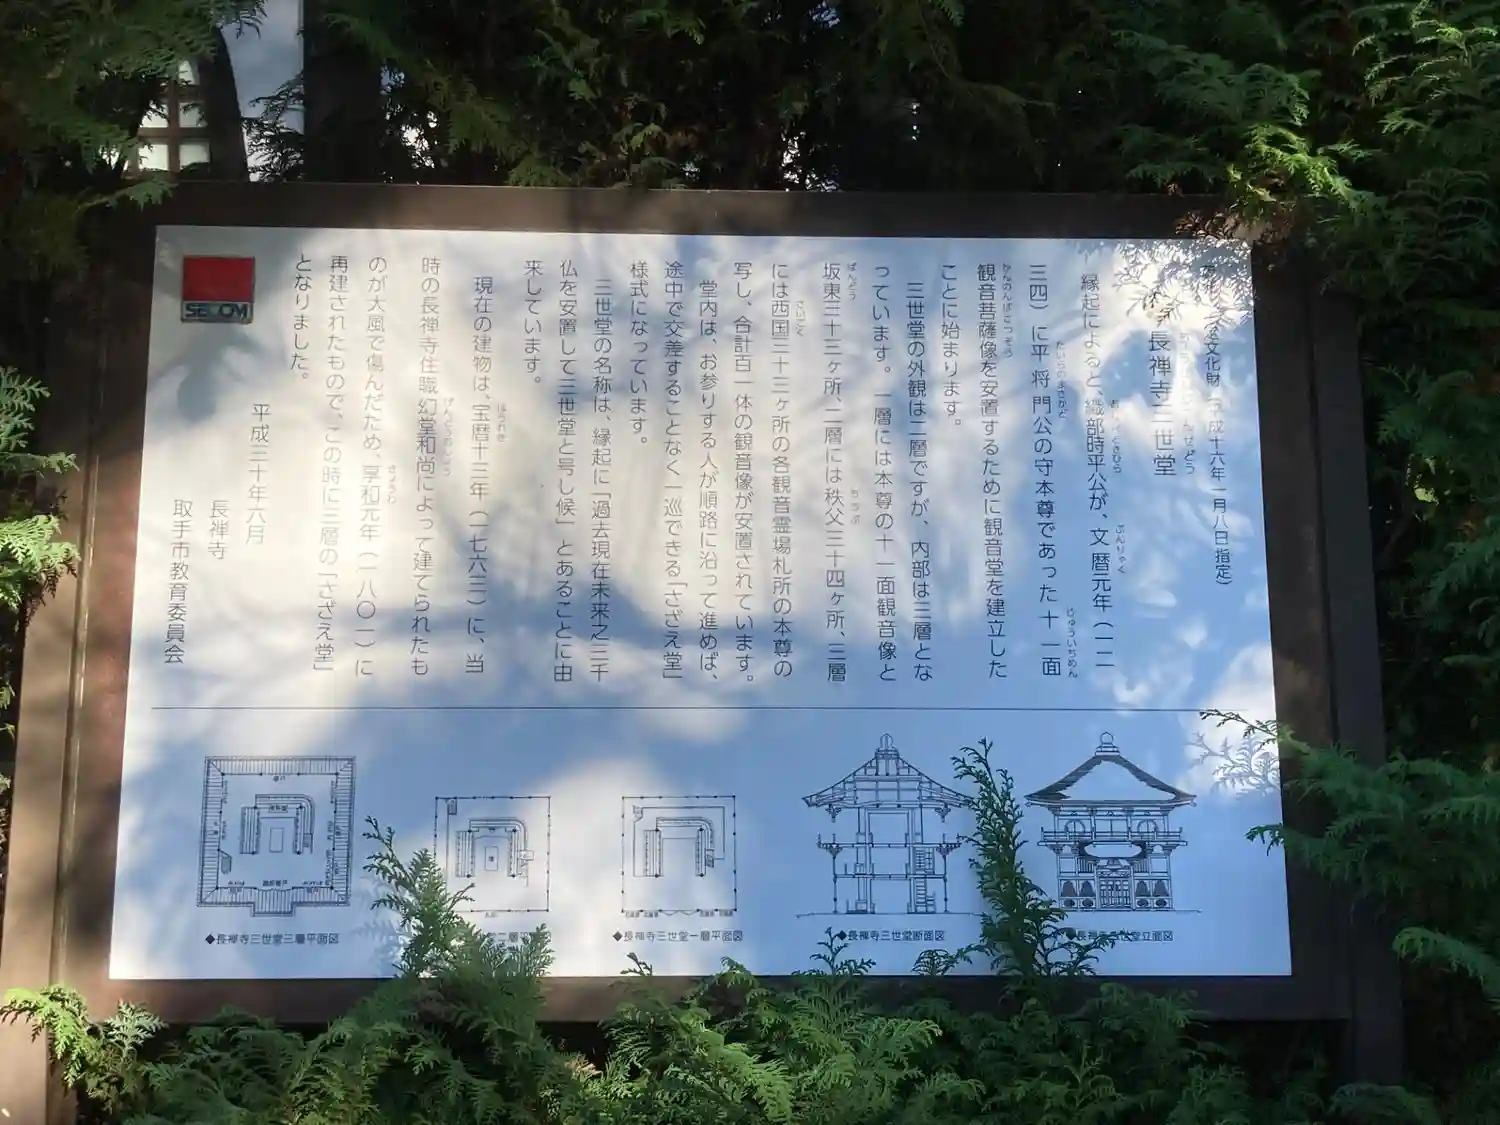 文化財（平成十六年一月八日指定）
長禅寺三世堂
縁起によると、織部時平公が、文暦元年（一二
三四）に平将門公の守本尊であった十一面
観音菩薩像を安置するために観音堂を建立した
ことに始まります。
三世堂の外観は二層ですが、内部は三層とな
っています。一層には本尊の十一面観音像と
坂東三十三ヶ所、二層には秩父三十四ヶ所、三層
には西国三十三ヶ所の各観音霊場札所の本尊の
写し、合計百一体の観音像が安置されています。
堂内は、お参りする人が順路に沿って進めば、
途中で交差することなく一巡できる「さざえ堂」
様式になっています。
三世堂の名称は、縁起に「過去現在未来之三千
仏を安置して三世堂と号し候」とあることに由
来しています。
現在の建物は、宝暦十三年（一七六三）に、当
時の長禅寺住職幻堂和尚によって建てられたも
のが大風で傷んだため、享和元年（一八〇一）に
再建されたもので、この時に三層の「さざえ堂」
となりました。
平成三十年六月
長禅寺
取手市教育委員会
SECOM
◆長禅寺三世堂立面図
◆長禅寺三世堂断面図
◆長禅寺三世堂一層平面図
二層平面図
◆長禅寺三世堂三層平面図